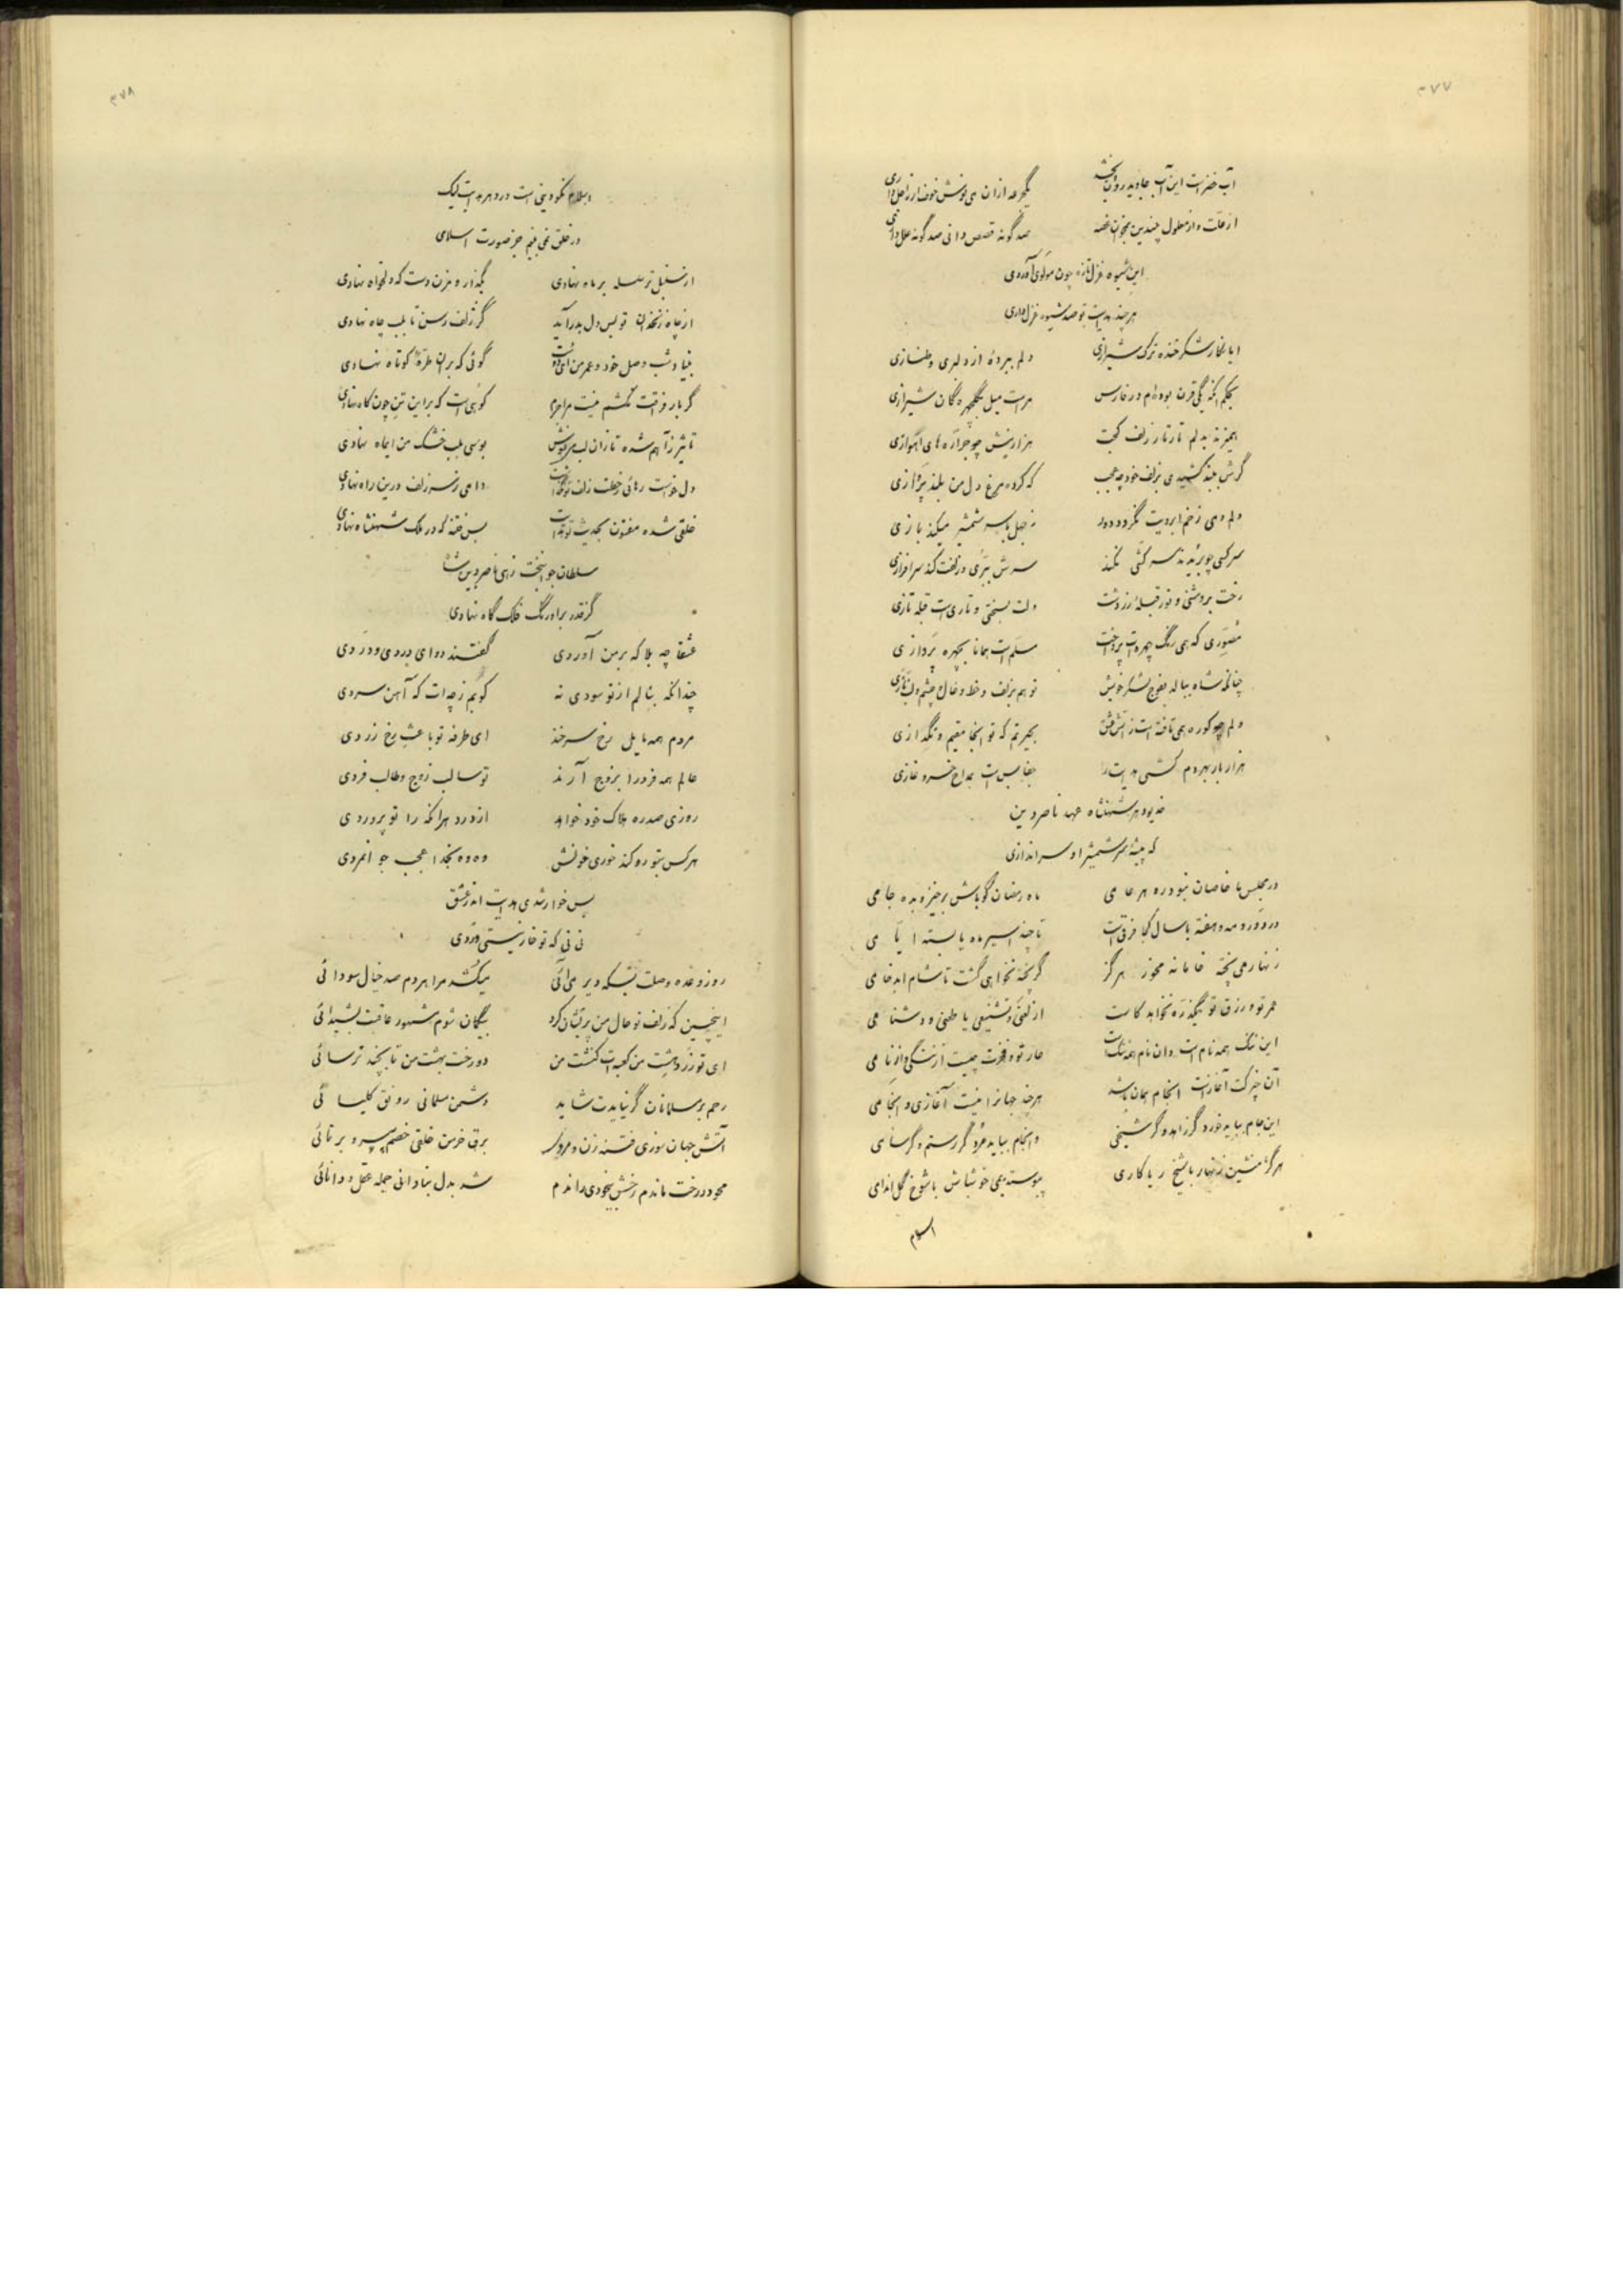 ۳۷۷
آب خضر است این آب جاوید روان بخشد
یکجرعه ازان می نوش خوف از اجل داری
از علت و از معلول چندین بمخوان قصه
صد گونه قصص دانی صد گونه علل داری
این شیوه غزل تازه چون مولوی آوردی
هر چند هدایت تو صد شیوه غزل داری
ایا نگار شکر خنده ترک شیرازی
دلم ببرده از دلبری و طنازی
بحکم آنکه یکی قرن بوده ام در فارس
مراست میل بگلچهرگان شیرازی
همیزند بدلم تار تار زلف کجت
هزار نیش چو جراره های اهوازی
گرش ببند کشیدی بزلف خود چه عجب
که کرده مرغ دل من بلند پروازی
دلم دمی ز خم ابرویت نگردد دور
ز جهل با سر شمشیر میکند بازی
سر کسی چو بریدند سرکشی نکند
سرش ببری و زلفت کند سرافرازی
رخت بروشنی و نور قبله زردشت
دلت بسختی و تاریست قبله تازی
مصوری که همی رنگ چهره ات پرداخت
مسلم است همانا بچهره پردازی
چنانکه شاه ببالد بفوج لشکر خویش
تو هم بزلف و خط و خال و چشم و لب نازی
دلم چو کوره همی تافته است ز آتش عشق
بحیرتم که تو آنجا مقیم و نگدازی
هزار بار بهر دم کشی هدایت را
جفا بس است بمداح خسرو غازی
خدیو دهر شهنشاه عهد ناصر دین
که پیشه سر شمشیر او سراندازی
در مجلس ما خاصان نبود ره هر عامی
ماه رمضان گو باش برخیز و بده جامی
در دور و مه و هفته با سال کجا فرق است
تا چند اسیر ماه پابسته ایامی
زنهار می پخته خامانه مخور هرگز
گر پخته نخواهی گشت تا شام ابد خامی
عمر تو و رزق تو یکذره نخواهد کاست
از لعنی و تشنیعی یا طعنی و دشنامی
این ننگ همه نام است وان نام همه ننگ است
عار تو و فخرت چیست از ننگی و از نامی
آن چیز کت آغاز است انجام همان باشد
هر چند جهانرا نیست آغازی و انجامی
این جام بباید خورد گر زاهد و گر شیخی
وانجام بباید مرد گر رستم و گر سامی
هرگز منشین زنهار با شیخ ریاکاری
پیوسته بمی خوش باش با شوخ گل اندامی
اسلام
۳۷۸
اسلام نکو دینی است در دهر هدایت لیک
در خلق نمی بینم جز صورت اسلامی
از سنبل تر سلسله بر ماه نهادی
بگذار و مزن دست که دلخواه نهادی
از چاه زنخدان تو بس دل بدر آید
گر زلف رسن تا بلب چاه نهادی
بنیاد شب وصل خود و عمر من ای دوست
گوئی که بران طره کوتاه نهادی
گر بار فراقت نکشم نیست مرا جرم
کوهی است که بر این تن چون کاه نهادی
تاثیر ز آهم شده تا زان لب می نوش
بوسی بلب خشک من از آه نهادی
دل خواست رهائی ز خطت زلف تو نگذاشت
دامی ز سر زلف درین راه نهادی
خلقی شده مفتون بحدیث تو هدایت
بس فتنه که در ملک شهنشاه نهادی
سلطان جوانبخت زهی ناصر دین شاه
کز قدر بر اورنگ فلک گاه نهادی
عشقا چه بلا که بر من آوردی
گفتند دوای دردی و دردی
چندانکه بنالم از تو سودی نه
کوبم ز چه ات که آهن سردی
مردم همه مایل رخ سرخند
ای طرفه تو باعث رخ زردی
عالم همه فرد را بزوج آرند
تو سالب زوج و طالب فردی
روزی صد ره هلاک خود خواهد
از درد هرانکه را تو پروردی
هر کس بتو رو کند خوری خونش
وه وه بخدا عجب جوانمردی
بس خوار شدی هدایت اندر عشق
نی نی که تو خار نیستی وردی
روز وعده وصلت بسکه دیر می آئی
میکشد مرا هر دم صد خیال سودائی
اینچنین که زلف تو حال من پریشان کرد
بیگمان شوم مشهور عاقبت بشیدائی
ای تو زردهشت من کعبه ات کنشت من
دوزخت بهشت من تا بچند ترسائی
رحم بر مسلمانان گر نیایدت شاید
دشمن مسلمانی رونق کلیسائی
آتش جهان سوزی فتنه زن و مردی
برق خرمن خلقی خصم پیر و برنائی
محو در رخت ماندم رخش بیخودی راندم
شد بدل بنادانی جمله عقل و دانائی